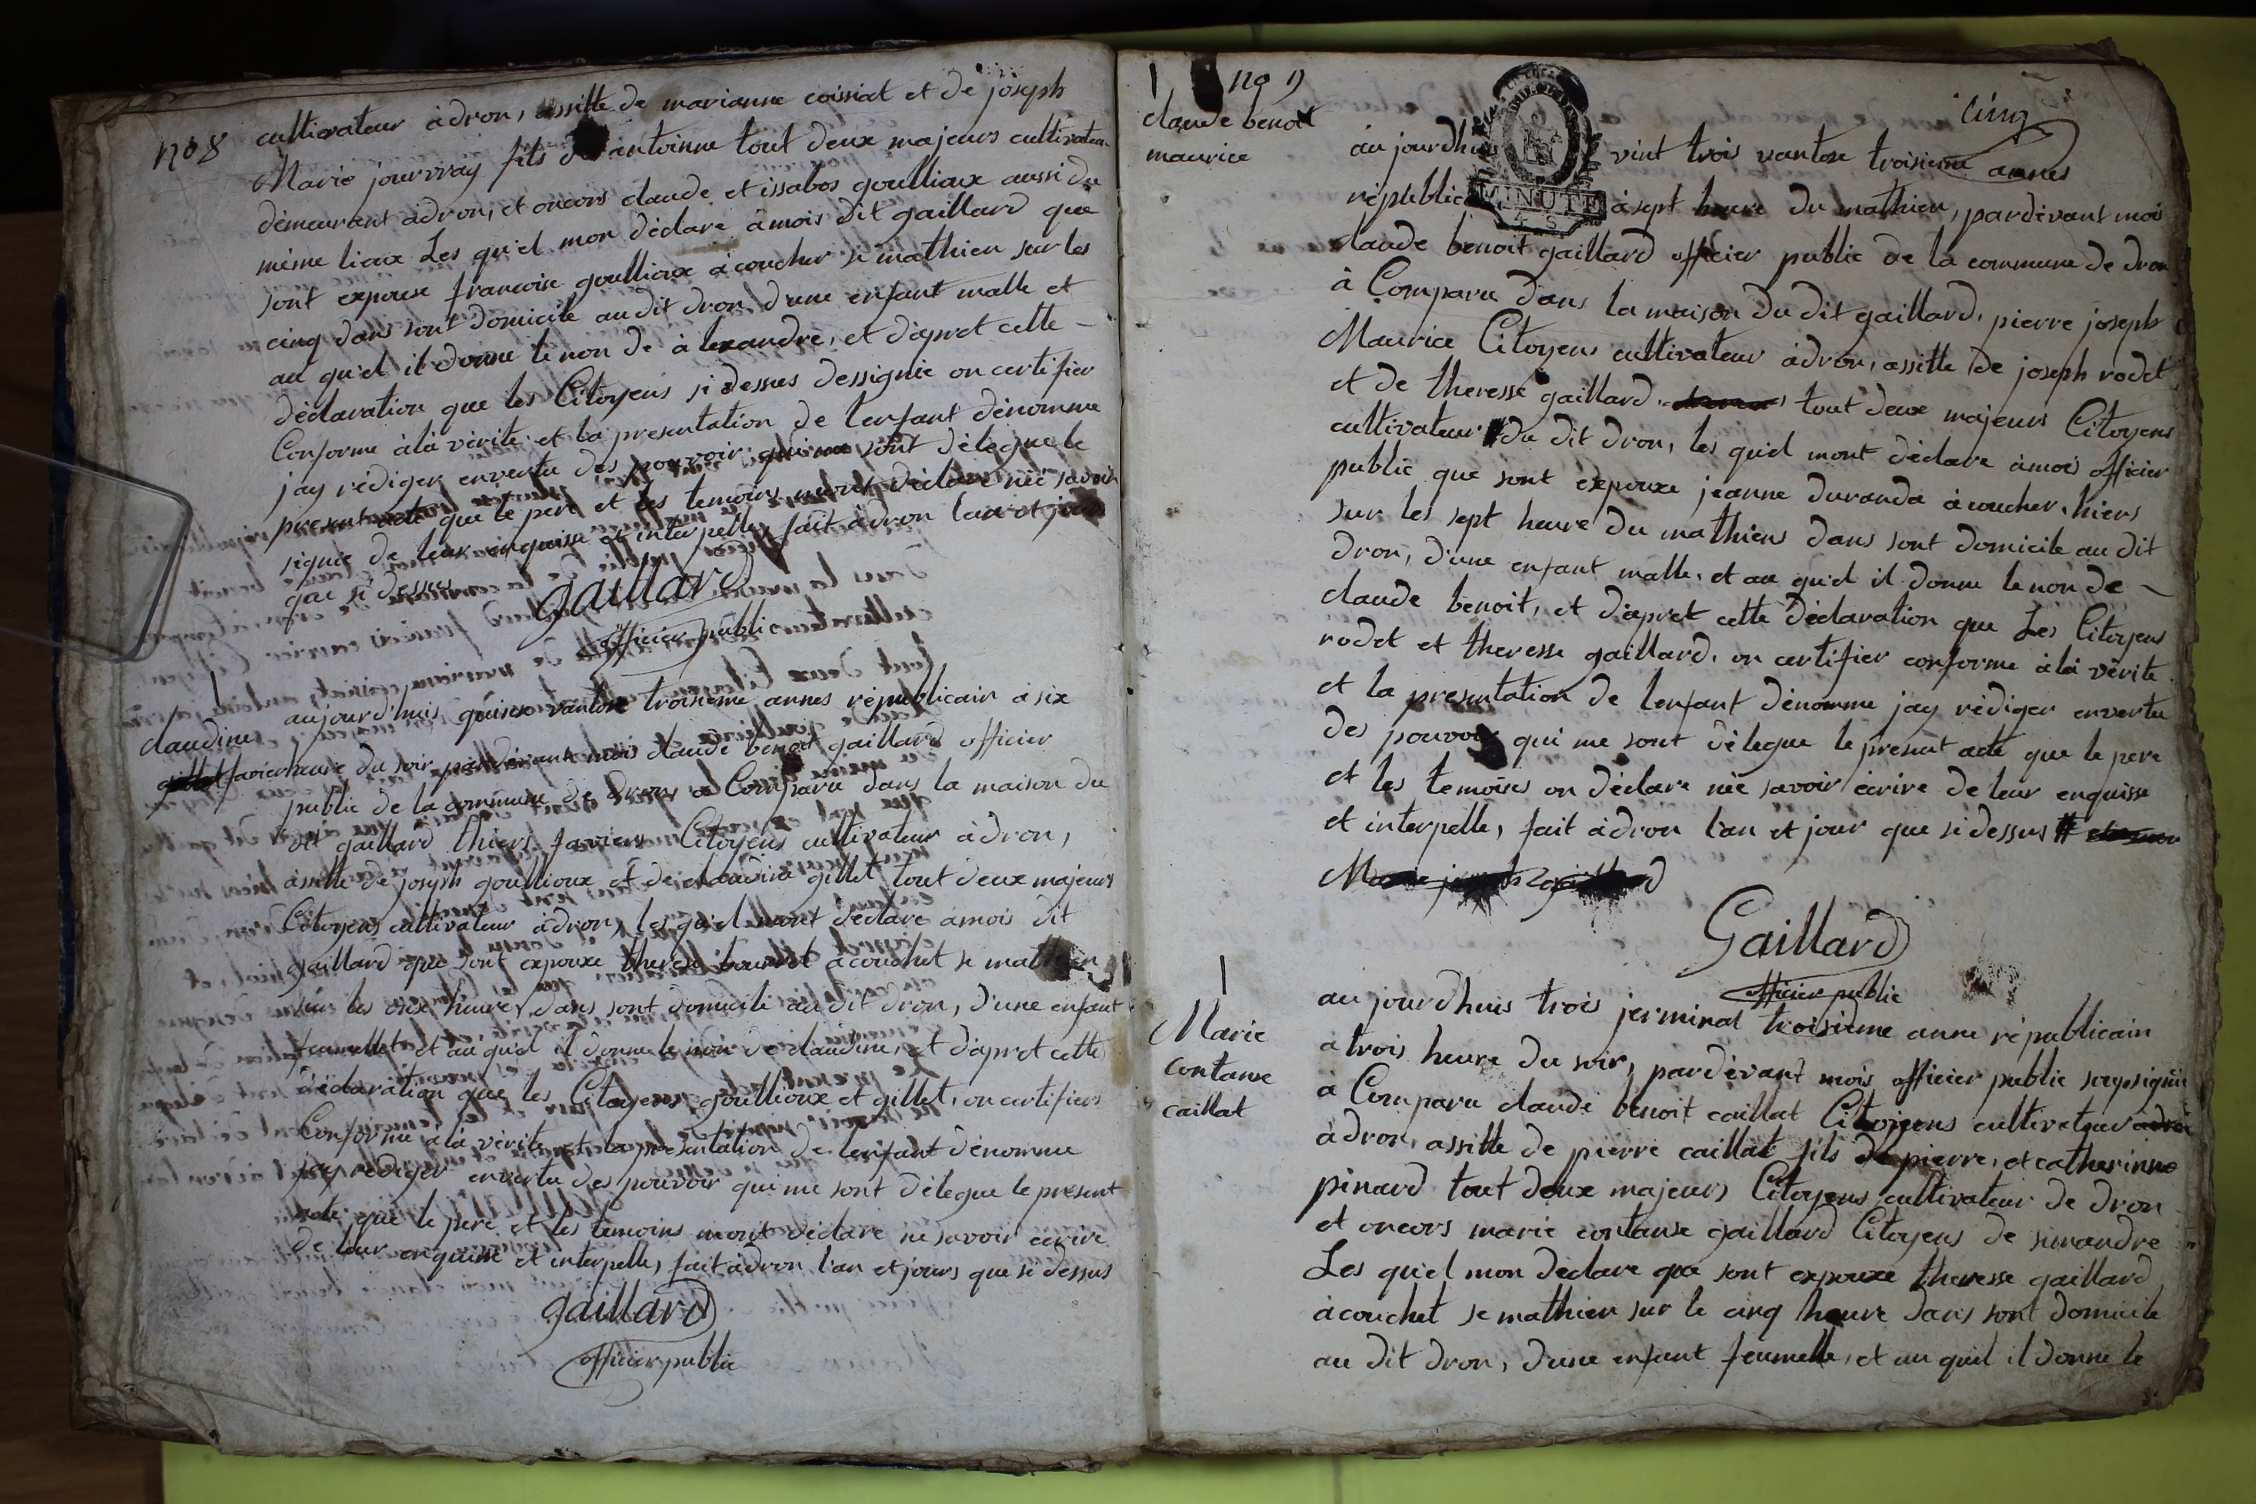 no 8
cultivateur à dron, assitte de marianne coissiat et de joseph
Marie jourvray fils de antoinne tout deux majeurs cultivateur
demeurant à dron, et oncors claude et issabos goullioux aussi du
même lieux Les qu'el mon déclare à mois dit gaillard que
sont expouse francoise goullioux à coucher se mathien sur les
cinq dans sont domicile au dit dron d'une enfant malle et
au qu'el il donne le non de à lexandre, et d'apret cette
déclaration que les Citoyens si dessus dessignie on certifier
Conforme à la vérite et la presentation de l'enfant dénomme
jay rédiger envertu des pouvoir qui me sont délegue le
present acte que le pere et les temoins mont déclare nee savoir
signie de leur enquisse et interpelle, fait à dron l'an et jour
que si dessus
gaillard
officier public
claudine
favier
aujourd'huis quinse vantose troisieme annes républicain à six
heure du soir pardevant mois claude benoit gaillard officier
public de la commune de dron a Comparu dans la maison du
dit gaillard thiers faviers Citoyens cultivateur à dron,
assitte de joseph goullioux et de claudine gillet tout deux majeurs
Citoyens cultivateur à dron, les qu'el mont déclare à mois dit
gaillard que sont expouxe therese bourdet à couchet se mathien
sur les onse heure dans sont domicile au dit dron, d'une enfant
feumelle et au qu'el il donne le non de claudine, et d'apret cette
déclaration que les Citoyens goullioux et gillet, on certifiers
Conforme à la vérite et la presentation de lenfant dénomme
jay rédiger envertu des pouvoir qui me sont délegue le present
acte que le pere et les temoins mont déclare ne savoir écrire
de leur enquisse et interpelle, fait à dron l'an et jours que si dessus
gaillard
officier public
no 9
cinq
claude benoit
maurice
MINUTE
4 S
aujourdhuis vint trois vantose troisieme annes
républic à sept heure du mathien, pardevant mois
claude benoit gaillard officier public de la commune de dron
à Comparu dans la maison du dit gaillard, pierre joseph
Maurice Citoyens cultivateur à dron, assitte de joseph rodet
et de theresse gaillard, tout deux majeurs Citoyens
cultivateur du dit dron, les qu'el mont déclare à mois officier
public que sont expouxe jeanne duranda à coucher hiers
sur les sept heure du mathiens dans sont domicile au dit
dron, d'une enfant malle, et au qu'el il donne le non de
claude benoit, et d'apret cette déclaration que Les Citoyens
rodet et theresse gaillard, on certifier conforme à la vérite
et la presentation de lenfant dénomme jay rédiger envertu
des pouvoir qui me sont délegue le present acte que le pere
et les temoins on déclare née savoir écrire de leur enquisse
et interpelle, fait à dron l'an et jour que si dessus
Gaillard
officier public
Marie
contanse
caillat
au jourdhuis trois jerminal troisieme anne républicain
a trois heure du soir, pardévant mois officier public soussignie
à Comparu claude benoit caillat Citoyens cultivateur
à dron, assitte de pierre caillat fils de pierre, et catherinne
pinard tout deux majeurs Citoyens cultivateur de dron
et oncors marie contanse gaillard Citoyens de simandre
Les qu'el mon déclare que sont expouxe theresse gaillard
à couchet se mathien sur le cinq heure dans sont domicile
au dit dron, d'une enfant feumelle, et au quel il donne le